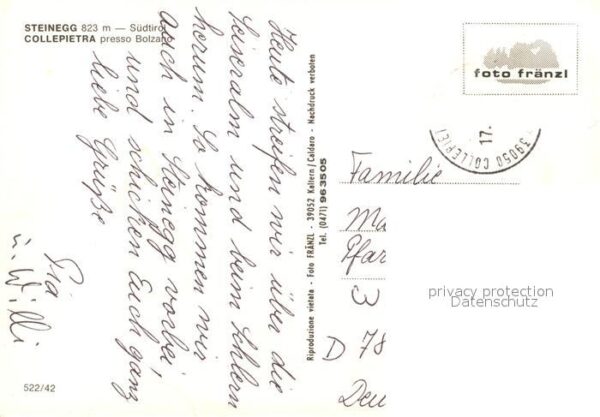 STEINEGG 823 m — Südtirol
COLLEPIETRA presso Bolzano
Heute streifen wir über die
Seiseralm und beim Schlern
herum. So kommen wir
auch in Steinegg vorbei
und schicken Euch ganz
liebe Grüße
Pia
u. Willi
522/42
Riproduzione vietata - Foto FRÄNZL - 39052 Kaltern/Caldaro - Nachdruck verboten
Tel. (0471) 963505
foto fränzl
17.
39050 COLLEPIE
Familie
Ma
Pfar
3
D 78
Deu
privacy protection
Datenschutz